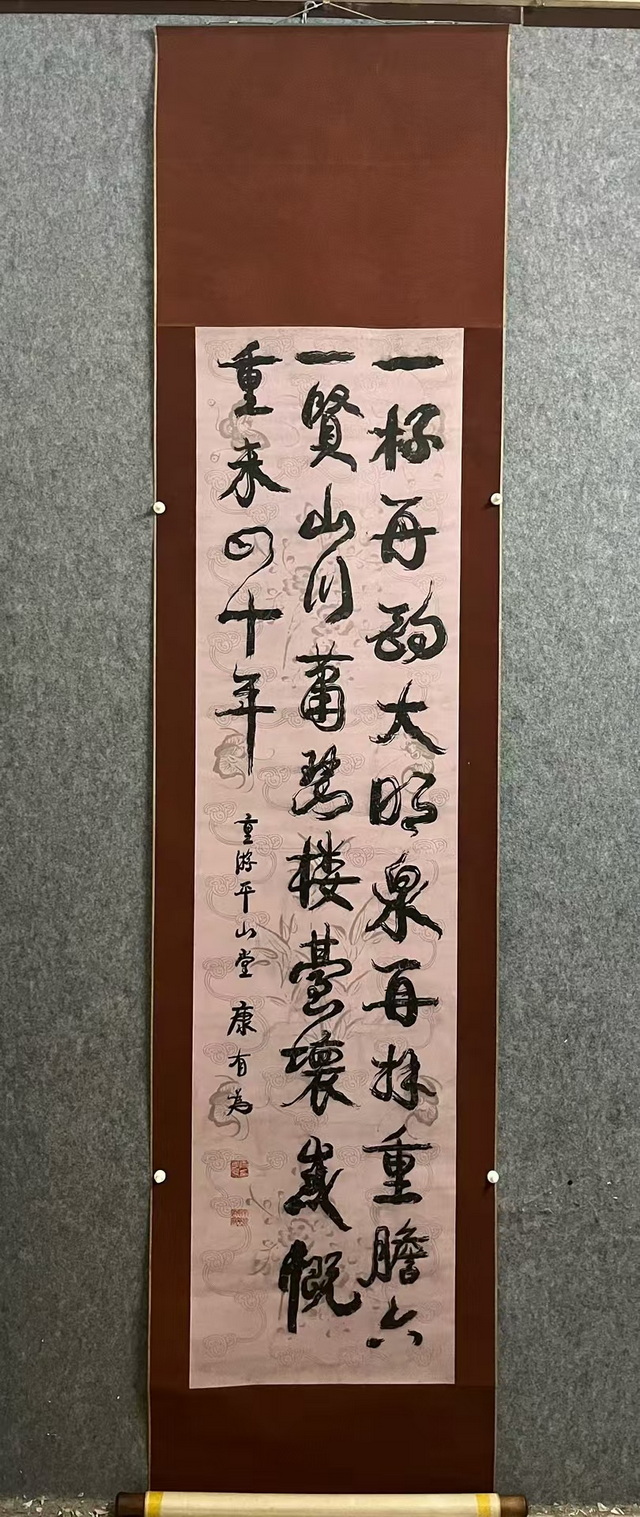 一杯再酌大明泉再拜重瞻六
一賢山川蕭瑟楼臺壞感慨
重来四十年
重游平山堂 康有為